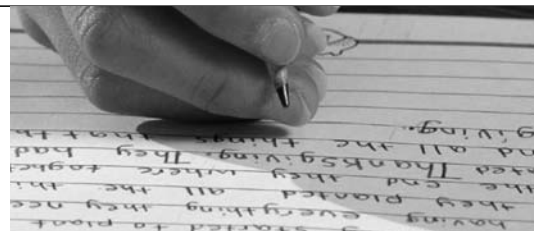 y started to plant
having everything they nee
they planned all the thi
the end they where toghet
ated Thanksgiving. They had
nd all the things that th
giving.